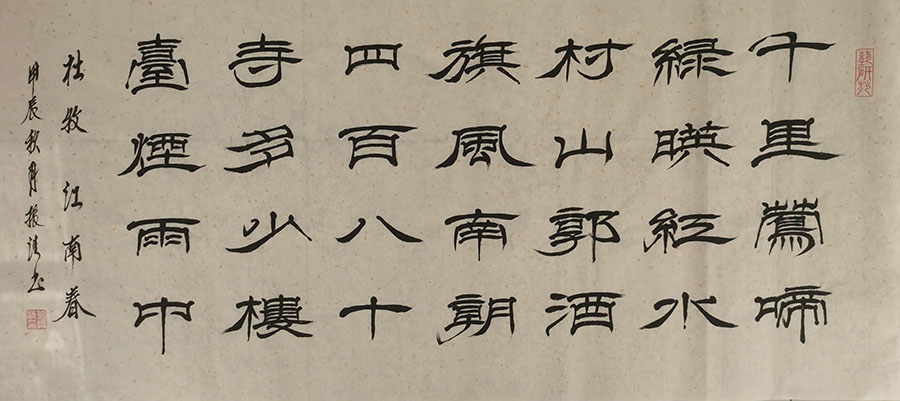 千里鶯啼
緑暎紅水
村山郭酒
旗風南朝
四百八十
寺多少樓
臺煙雨中
杜牧 江南春
甲辰秋月振清书